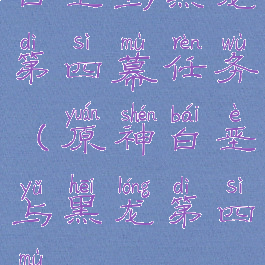 dì sì mù rèn wù
第四幕任务
yuán shén bái è
（原神白垩
yǔ hēi lóng dì sì
与黑龙第四
mù